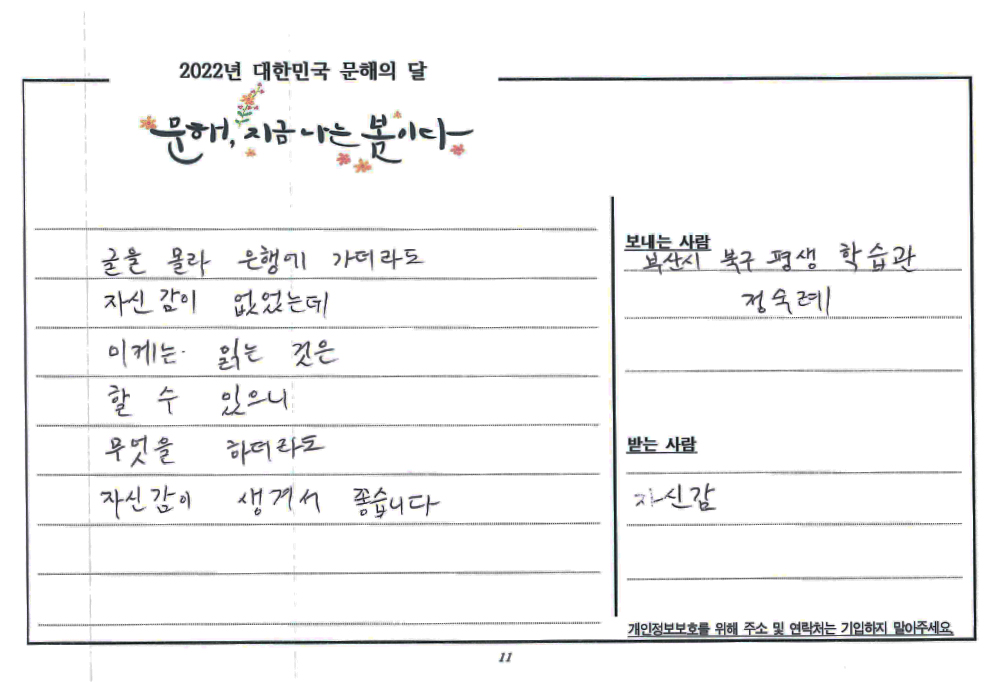 2022년 대한민국 문해의 달
문해, 지금 나는 봄이다
글을 몰라 은행에 가더라도
자신감이 없었는데
이케는 읽는 것은
할 수 있으니
무엇을 하더라도
자신감이 생겨서 좋습니다
보내는 사람
부산시 북구 평생 학습관
정숙례
받는 사람
자신감
개인정보보호를 위해 주소 및 연락처는 기입하지 말아주세요
11